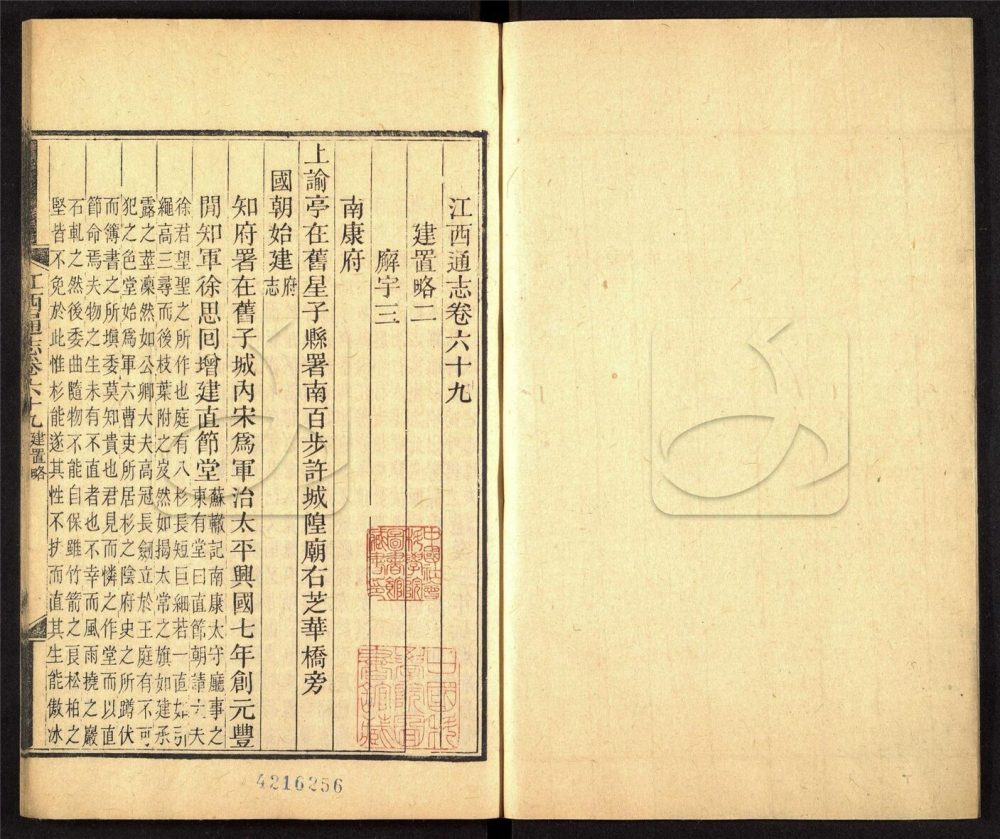 江西通志卷六十九
建置略二
廨宇三
南康府
上諭亭在舊星子縣署南百步許城隍廟右芝華橋旁
國朝始建府志
知府署在舊子城內宋爲軍治太平興國七年創元豐
閒知軍徐思回增建直節堂蘇轍記南康太守廳事之東有堂曰直節朝請大夫
徐君望聖之所作也庭有八杉長短巨細若一直如引
繩高三尋而後枝葉附之岌然如揭太常之旗如建承
露之莖凜然如公卿大夫高冠長劍立於王庭有不可
犯之色堂始爲軍六曹吏所居杉之陰府史之所蹲伏
而簿書之所填委莫知貴也君見而憐之作堂而以直
節命焉夫物之生未有不直者也不幸而風雨撓之巖
石軋之然後委曲隨物不能自保雖竹箭之良松柏之
堅皆不免於此惟杉能遂其性不扶而直其生能傲冰
江西通志卷六十九 建置略
中國社會科學院圖書館藏書印
4216256